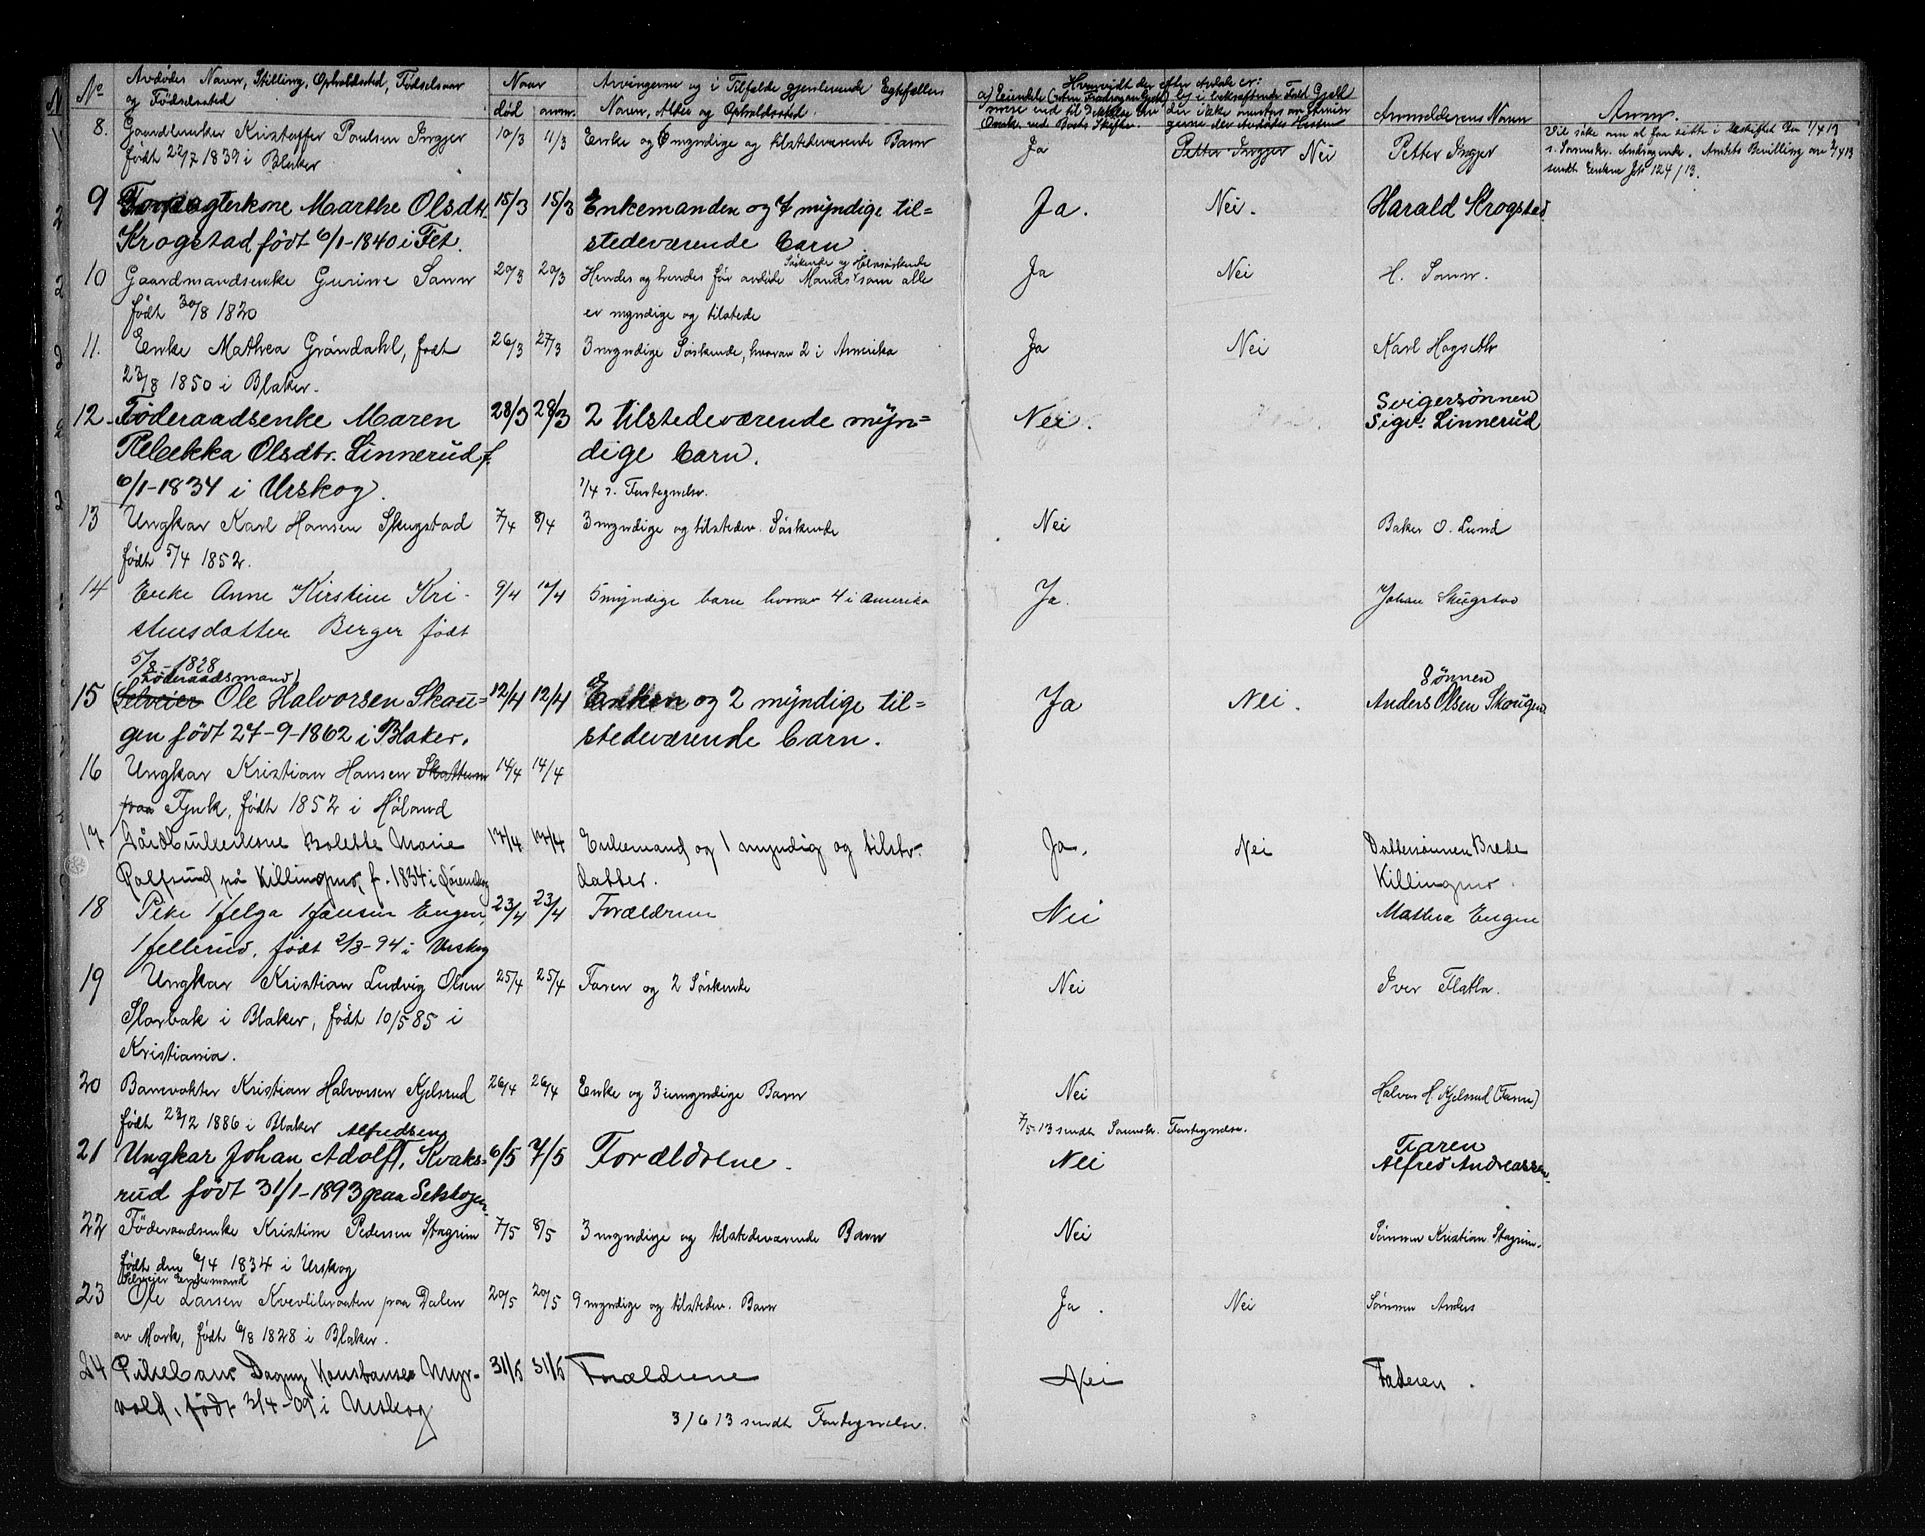 No Avdødes Navn, Stilling, Opholdssted, Fødselsaar og Fødselssted
Naar død anm.
Arvingerne og i Tilfælde gjenlevende Egtefælles Navn, Alder og Opholdssted.
Hvorvidt der efter Avdøde er:
Anmelderens Navn
Anm.
8. Gaardbruker Kristoffer Poulsen Ingjer 10/3 11/3 Enke og 6 myndige og tilstedeværende Barn Ja Petter Ingjer Nei Petter Ingjer
født 22/2 1839 i Blaker
9 Forpagterkone Marthe Olsdtr. 15/3 15/3 Enkemanden og 7 myndige til= Ja. Nei. Harald Krogstad
Krogstad født 6/1-1840 i Fet. stedeværende barn
Søskende og Halvsøskende
10 Gaardmandsenke Gurine Sann 20/3 20/3 Hendes og hendes før avdøde Mands som alle Ja Nei H. Sann.
født 30/8 1820 er myndige og tilstede
11. Enke Mathea Gröndahl, født 26/3 27/3 3 myndige Søskende, hvorav 2 i Amerika Ja Nei Karl Hogseth
23/8 1850 i Blaker.
Svigersønnen
12. Föderaadsenke Maren 28/3 28/3 2 tilstedeværende myn= Nei. Sigv. Linnerud
Rebekka Olsdtr. Linnerud f. dige barn.
6/1-1834 i Urskog. 1/4 s. Fortegnelse.
13 Ungkar Karl Hansen Skugstad 7/4 8/4 3 myndige og tilstedev. Søskende Nei Baker O. Lund
født 5/4 1852.
14 Enke Anne Kirstine Kri- 9/4 12/4 5 myndige barn hvorav 4 i Amerika Ja. Johan Skugstad
stensdatter Berger født
5/8-1828
Föderaadsmand Sønnen
15 Selveier Ole Halvorsen Skou= 12/4 12/4 Enken og 2 myndige til= Ja Nei. Anders Olsen Skougen
gen født 27-9-1862 i Blaker. stedeværende barn.
16 Ungkar Kristian Hansen Skattum 14/4 14/4
paa Tynk, født 1852 i Høland
17 Gårdbrukerkone Bolette Marie 17/4 17/4 Enkemand og 1 myndig og tilstv. Ja. Nei Dattersønnen Brede
på Killingmo, f. 1834 i datter. Killingmo.
18 Pike Helga Hansen Engen, 23/4 23/4 Forældrene Nei Mathea Engen
Hellerud, født 2/3-94 i Urskog
19 Ungkar Kristian Ludvig Olsen 25/4 25/4 Faren og 2 Søskende Nei Iver Flatla.
Slorbak i Blaker, født 10/5 85 i
Kristiania.
20 Banevokter Kristian Halvorsen Kjelsrud 26/4 26/4 Enke og 3 umyndige Barn Nei Halvor H. Kjelsrud (Faren)
født 23/2 1886 i Blaker 7/5-13 sendt Fortegnelse.
Alfredsen Faren
21 Ungkar Johan Adolf Kvaks= 6/5 7/5 Forældrene. Nei Alfred Andreassen.
rud født 31/1-1893 paa Setskogen
22 Föderaadsenke Kristine Pedersen Stagrim 7/5 8/5 3 myndige og tilstedeværende Barn Nei Sønnen Kristian Stagrim.
født den 6/4 1834 i Urskog
Selveier Enkemand
23 Ole Larsen Kverlibraaten paa Dalen 20/5 20/5 9 myndige og tilstedev. Barn Ja. Nei Sønnen Anders
av Mork, født 6/8 1828 i Blaker.
24 Pikebarn Dagny Konstanse Myr- 31/5 31/5 Forældrene Nei Faderen.
vold, født 3/4-09 i Urskog
3/6 13 sendt Fortegnelse.